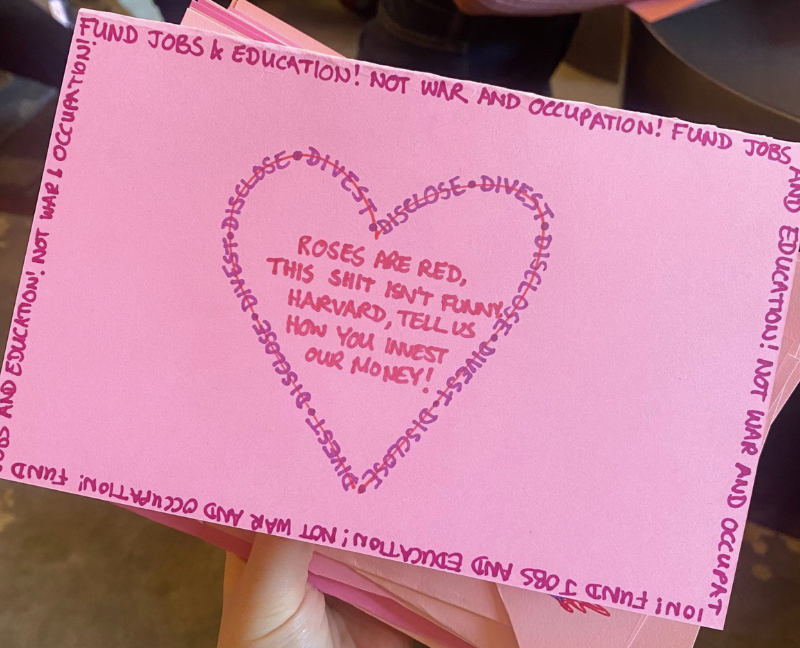 FUND JOBS & EDUCATION! NOT WAR AND OCCUPATION! FUND JOBS
AND EDUCATION! NOT WAR AND OCCUPAT
ION! FUND JOBS AND EDUCATION! NOT WAR AND OCCUPATION! FUND
JOBS AND EDUCATION! NOT WAR & OCCUPATION!
DISCLOSE • DIVEST • DISCLOSE • DIVEST • DISCLOSE • DIVEST • DISCLOSE • DIVEST • DISCLOSE • DIVEST • DISCLOSE • DIVEST
ROSES ARE RED,
THIS SHIT ISN'T FUNNY
HARVARD, TELL US
HOW YOU INVEST
OUR MONEY!